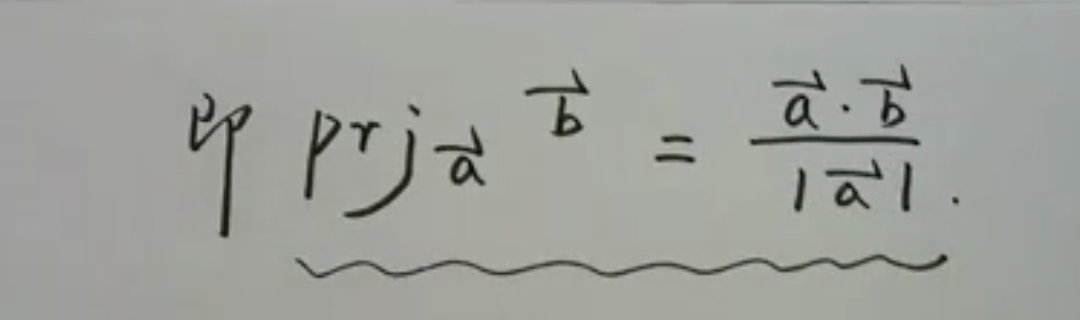 即 $\text{prj}_{\vec{a}} \vec{b} = \frac{\vec{a} \cdot \vec{b}}{|\vec{a}|}$.